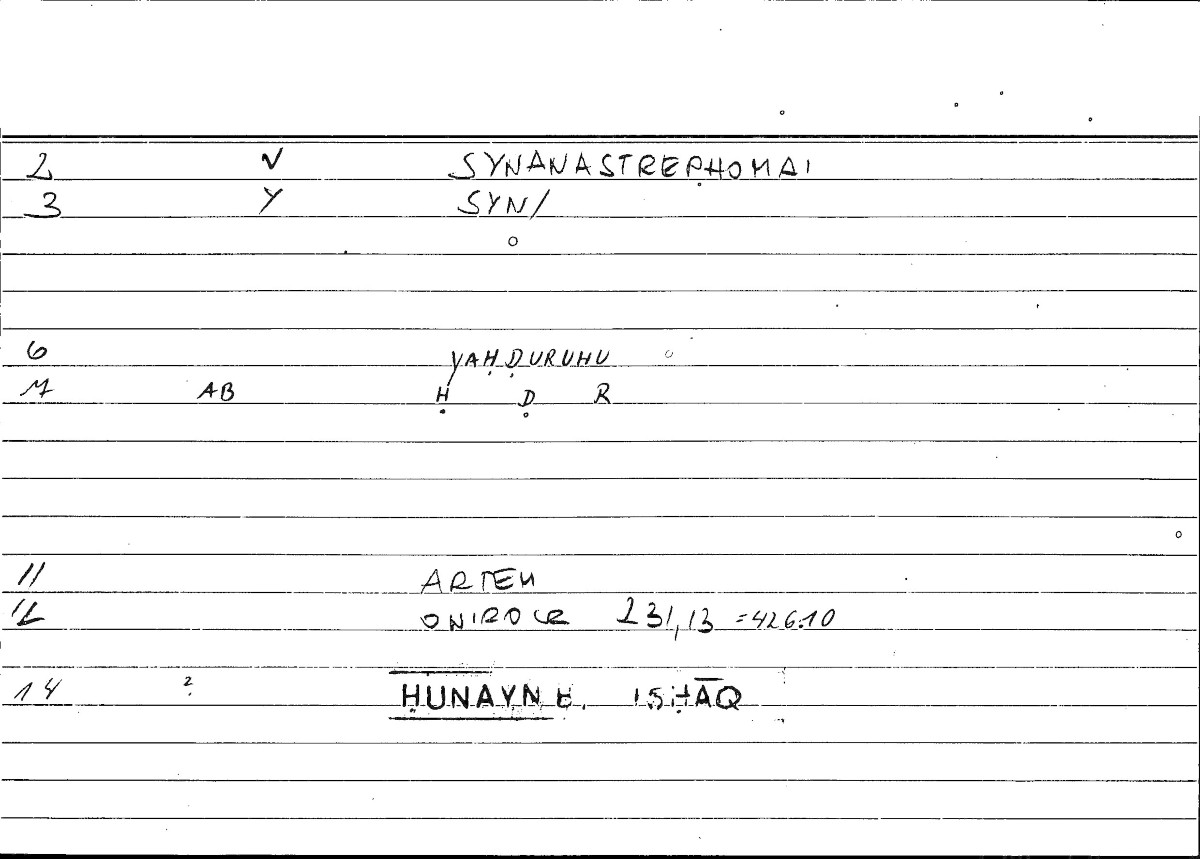 2 V SYNANASTREPHOMAI
3 Y SYN/
6 YAḤḌURUHU
7 AB Ḥ Ḍ R
11 ARTEM
12 ONIROCR 231,13 =426.10
14 2 ḤUNAYN B. ISḤĀQ